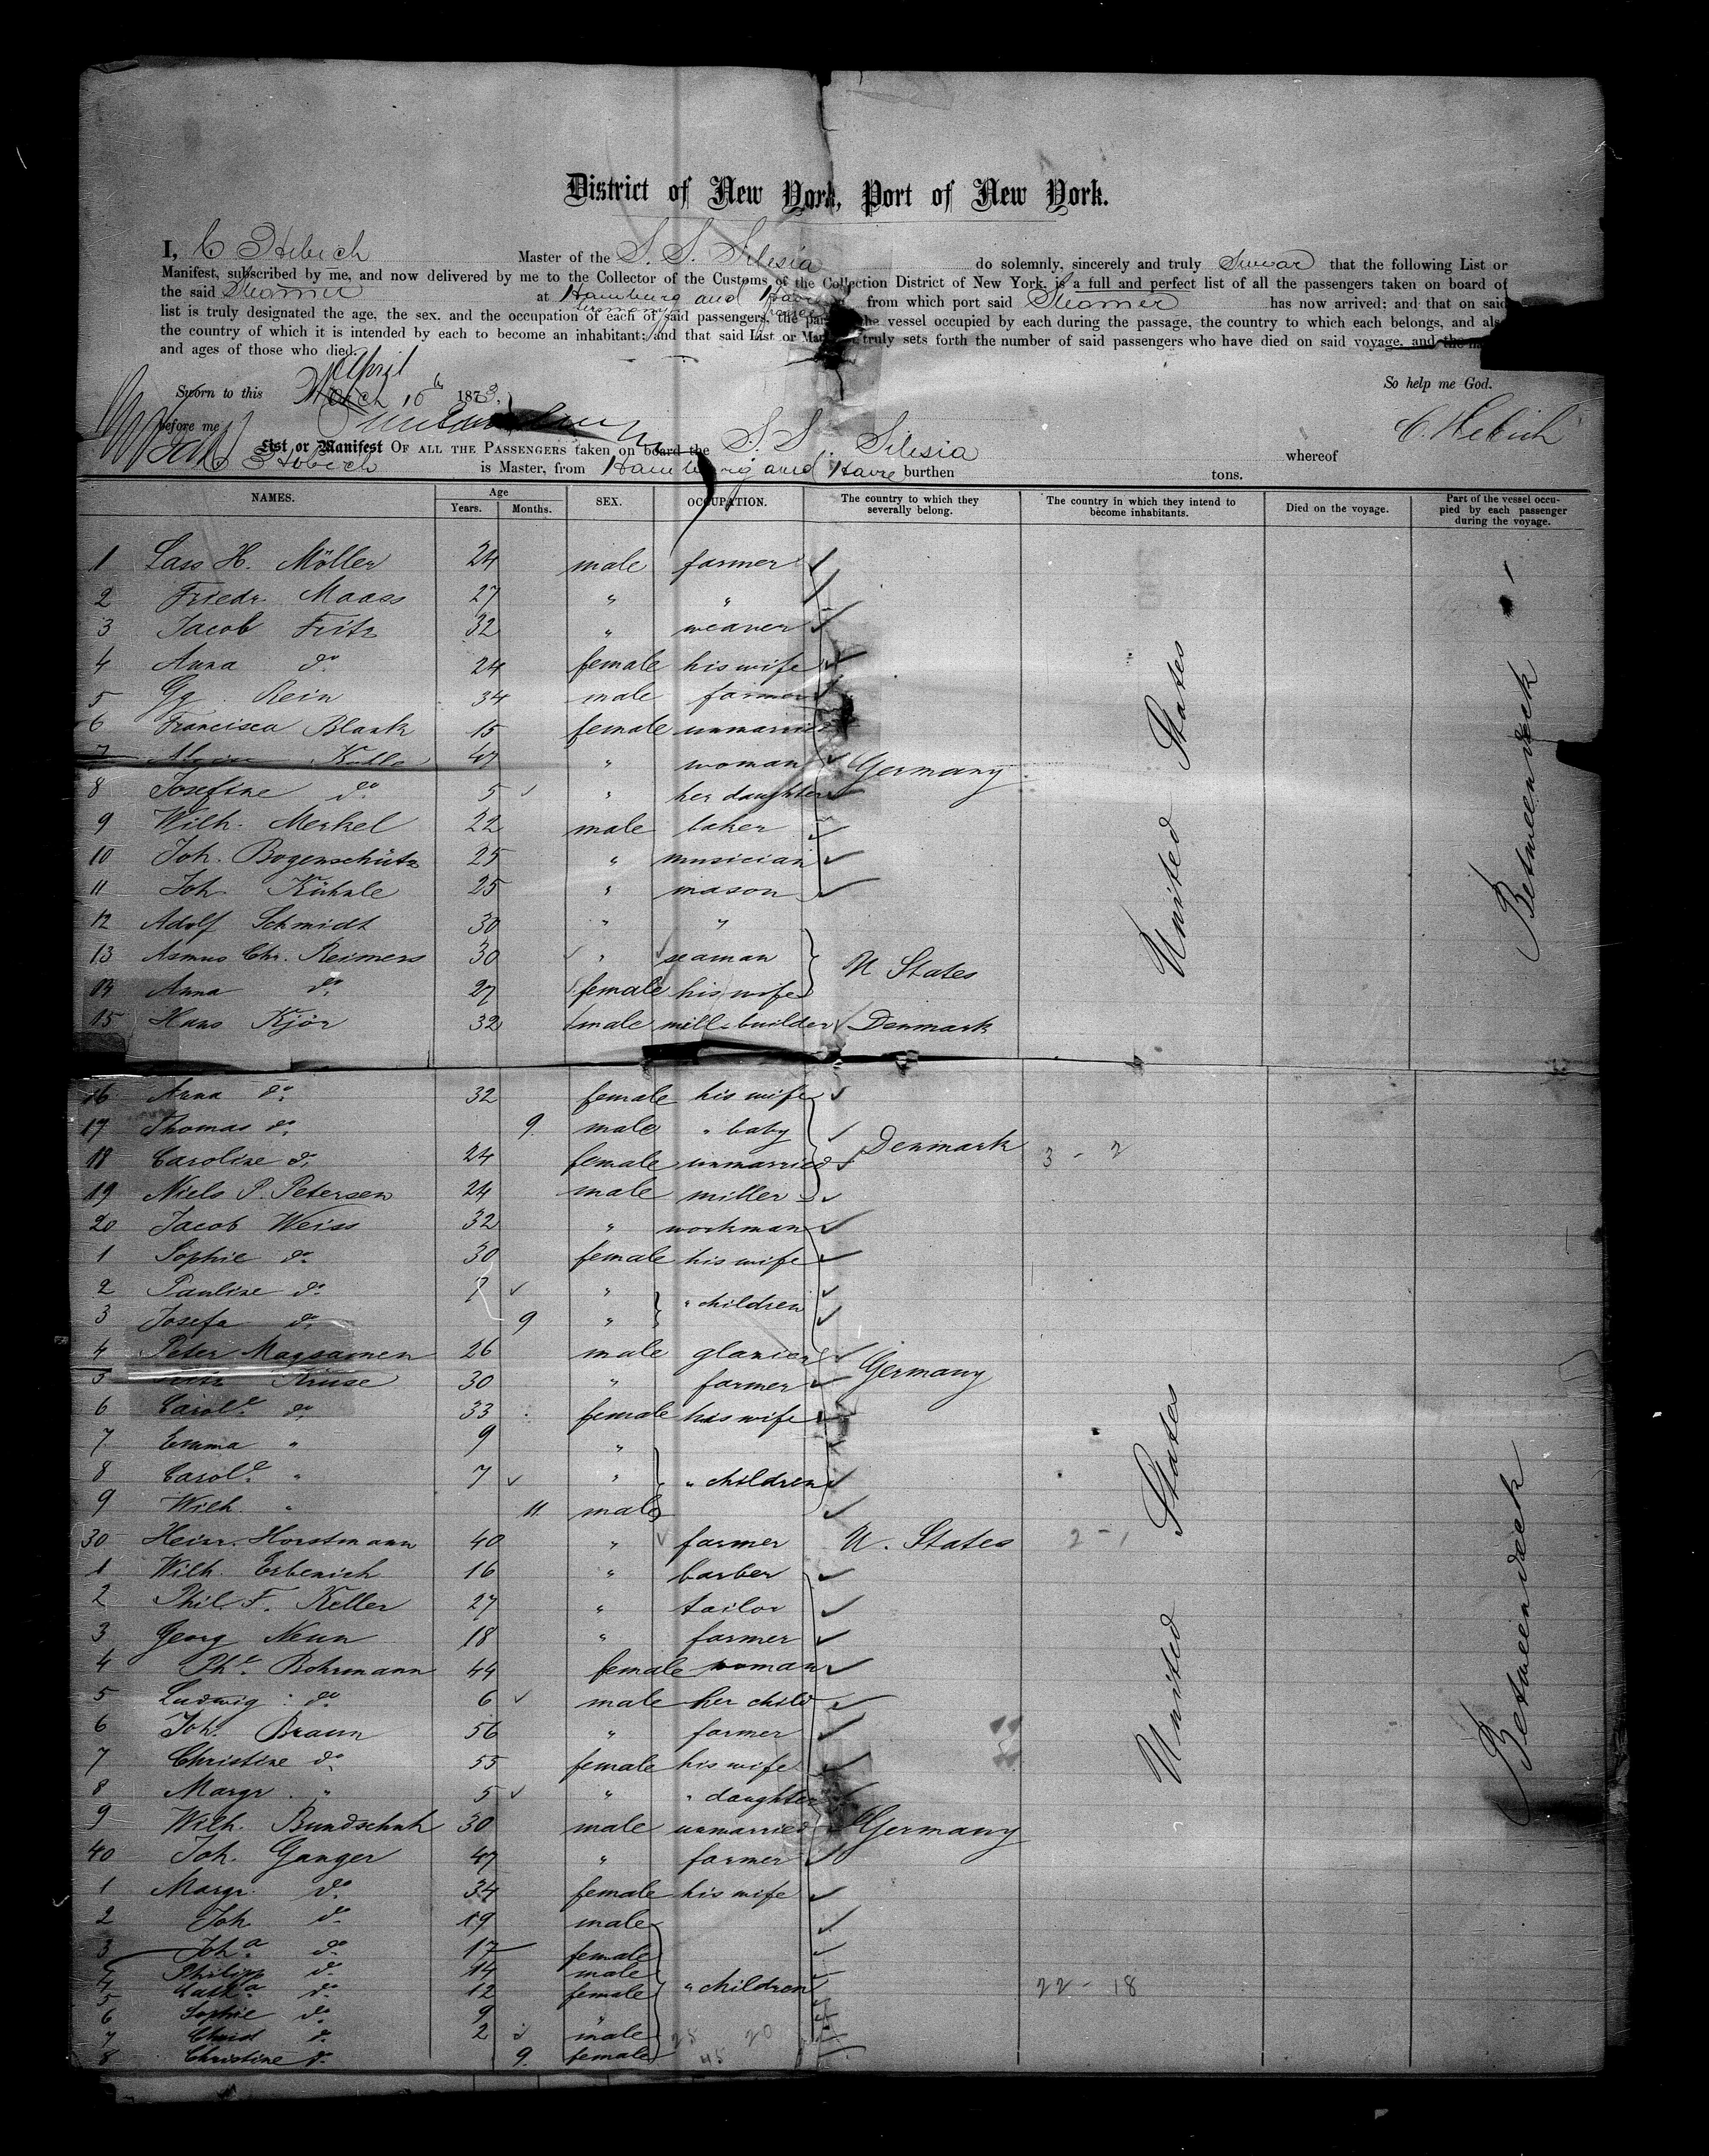 District of New York, Port of New York.
I, C Hebich Master of the S. S. Silesia do solemnly, sincerely and truly swear that the following List or
Manifest, subscribed by me, and now delivered by me to the Collector of the Customs of the Collection District of New York, is a full and perfect list of all the passengers taken on board of
the said Steamer at Hamburg and Havre from which port said Steamer has now arrived; and that on said
list is truly designated the age, the sex, and the occupation of each of said passengers, the part the vessel occupied by each during the passage, the country to which each belongs, and also
the country of which it is intended by each to become an inhabitant; and that said List or truly sets forth the number of said passengers who have died on said voyage, and the
and ages of those who died.
So help me God.
April
Sworn to this March 16th 1873.
before me
C. Hebich
List or Manifest OF ALL THE PASSENGERS taken on board the S. S. Silesia whereof
C Hebich is Master, from Hamburg and Havre burthen tons.
NAMES. Age Years. Months. SEX. OCCUPATION. The country to which they severally belong. The country in which they intend to become inhabitants. Died on the voyage. Part of the vessel occupied by each passenger during the voyage.
1 Lass H. Möller 24 male farmer
2 Friedr. Maass 27 " "
3 Jacob Fritz 32 " weaver
4 Anna do. 24 female his wife
5 Gg. Rein 34 male farmer
6 Francisca Blank 15 female unmarried
7 47 " woman Germany
8 Josefine do. 5 " her daughter
9 Wilh. Merkel 22 male baker
10 Joh. Bogenschütz 25 " musician
11 Joh Kühnle 25 " mason
12 Adolf Schmidt 30 " "
13 Asmus Chr. Reimers 30 " seaman U States
14 Anna do. 27 female his wife
15 Hans Kjör 32 male mill builder Denmark
United States
Betweendeck
16 Anna do. 32 female his wife
17 Thomas do. 9. male " baby
18 Caroline do. 24 female unmarried Denmark 3 - 2
19 Niels P. Petersen 24 male miller
20 Jacob Weiss 32 " workman
1 Sophie do. 30 female his wife
2 Pauline do. 7 " " children
3 Josefa do. 9 "
4 Peter Magsamen 26 male glazier Germany
5 Kruse 30 " farmer
6 Carole. do. 33 female his wife
7 Emma " 9 "
8 Carole. " 7 " " children
9 Wilh. " 11. male
30 Heinr. Horstmann 40 " farmer U. States 2 - 1
1 Wilh. Erbenich 16 " barber
2 Phil. F. Keller 27 " tailor
3 Georg Neun 18 " farmer
4 Phe. Bohrmann 44 female woman
5 Ludwig do. 6 male her child
6 Joh. Braun 56 " farmer
7 Christine do. 55 female his wife
8 Margr. " 5 " " daughter
9 Wilh. Bundschuh 30 male unmarried Germany
40 Joh. Ganger 47 " farmer
1 Margr. do. 34 female his wife
2 Joh do. 19 male
3 Joha. do. 17 female
4 Philipp do. 14 male
5 Catha. do. 12 female " children 22 - 18
6 Sophie do. 9 "
7 Christ do. 2 male 28 20
8 Christine do. 9. female 48
United States
Betweendeck